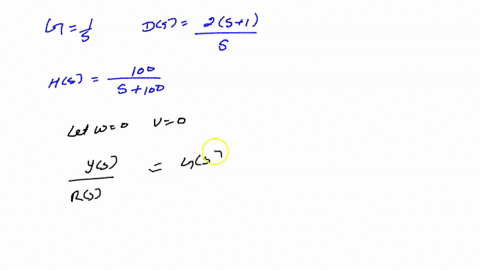 G = 1/s D(s) = 2(s+1)/s
H(s) = 100/(s+100)
Let w=0 V=0
Y(s)/R(s) = G(s)